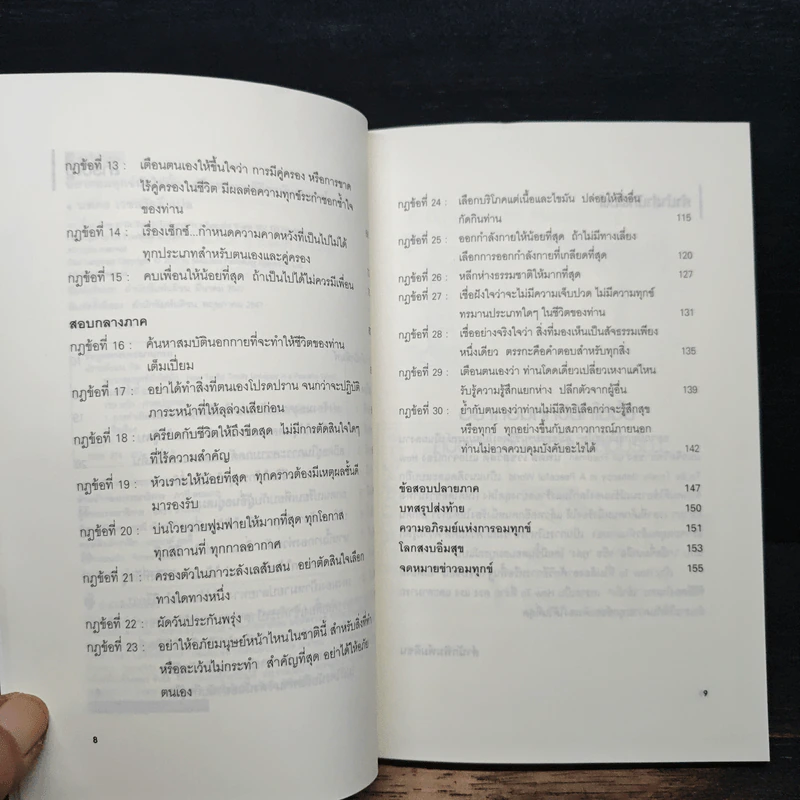 กฎข้อที่ 13 : เตือนตนเองให้ขึ้นใจว่า การมีคู่ครอง หรือการขาด
ไร้คู่ครองในชีวิต มีผลต่อความทุกข์ระกำชอกช้ำใจ
ของท่าน
กฎข้อที่ 14 : เรื่องเซ็กซ์...กำหนดความคาดหวังที่เป็นไปไม่ได้
ทุกประเภทสำหรับตนเองและคู่ครอง
กฎข้อที่ 15 : คบเพื่อนให้น้อยที่สุด ถ้าเป็นไปได้ไม่ควรมีเพื่อน
สอบกลางภาค
กฎข้อที่ 16 : ค้นหาสมบัตินอกกายที่จะทำให้ชีวิตของท่าน
เต็มเปี่ยม
กฎข้อที่ 17 : อย่าได้ทำสิ่งที่ตนเองโปรดปราน จนกว่าจะปฏิบัติ
ภาระหน้าที่ให้ลุล่วงเสียก่อน
กฎข้อที่ 18 : เครียดกับชีวิตให้ถึงขีดสุด ไม่มีการตัดสินใจใดๆ
ที่ไร้ความสำคัญ
กฎข้อที่ 19 : หัวเราะให้น้อยที่สุด ทุกคราวต้องมีเหตุผลชั้นดี
มารองรับ
กฎข้อที่ 20 : บ่นโวยวายฟูมฟายให้มากที่สุด ทุกโอกาส
ทุกสถานที่ ทุกกาลอากาศ
กฎข้อที่ 21 : ครองตัวในภาวะลังเลสับสน อย่าตัดสินใจเลือก
ทางใดทางหนึ่ง
กฎข้อที่ 22 : ผัดวันประกันพรุ่ง
กฎข้อที่ 23 : อย่าให้อภัยมนุษย์หน้าไหนในชาตินี้ สำหรับสิ่งที่ทำ
หรือละเว้นไม่กระทำ สำคัญที่สุด อย่าได้ให้อภัย
ตนเอง
8
กฎข้อที่ 24 : เลือกบริโภคแต่เนื้อและไขมัน ปล่อยให้สิ่งอื่น
กัดกินท่าน 115
กฎข้อที่ 25 : ออกกำลังกายให้น้อยที่สุด ถ้าไม่มีทางเลี่ยง
เลือกการออกกำลังกายที่เกลียดที่สุด 120
กฎข้อที่ 26 : หลีกห่างธรรมชาติให้มากที่สุด 127
กฎข้อที่ 27 : เชื่อฝังใจว่าจะไม่มีความเจ็บปวด ไม่มีความทุกข์
ทรมานประเภทใดๆ ในชีวิตของท่าน 131
กฎข้อที่ 28 : เชื่ออย่างจริงใจว่า สิ่งที่มองเห็นเป็นสัจธรรมเพียง
หนึ่งเดียว ตรรกะคือคำตอบสำหรับทุกสิ่ง 135
กฎข้อที่ 29 : เตือนตนเองว่า ท่านโดดเดี่ยวเปลี่ยวเหงาแค่ไหน
รับรู้ความรู้สึกแยกห่าง ปลีกตัวจากผู้อื่น 139
กฎข้อที่ 30 : ย้ำกับตนเองว่าท่านไม่มีสิทธิเลือกว่าจะรู้สึกสุข
หรือทุกข์ ทุกอย่างขึ้นกับสภาวการณ์ภายนอก
ท่านไม่อาจควบคุมบังคับอะไรได้ 142
ข้อสอบปลายภาค 147
บทสรุปส่งท้าย 150
ความอภิรมย์แห่งการอมทุกข์ 151
โลกสงบอิ่มสุข 153
จดหมายข่าวอมทุกข์ 155
9